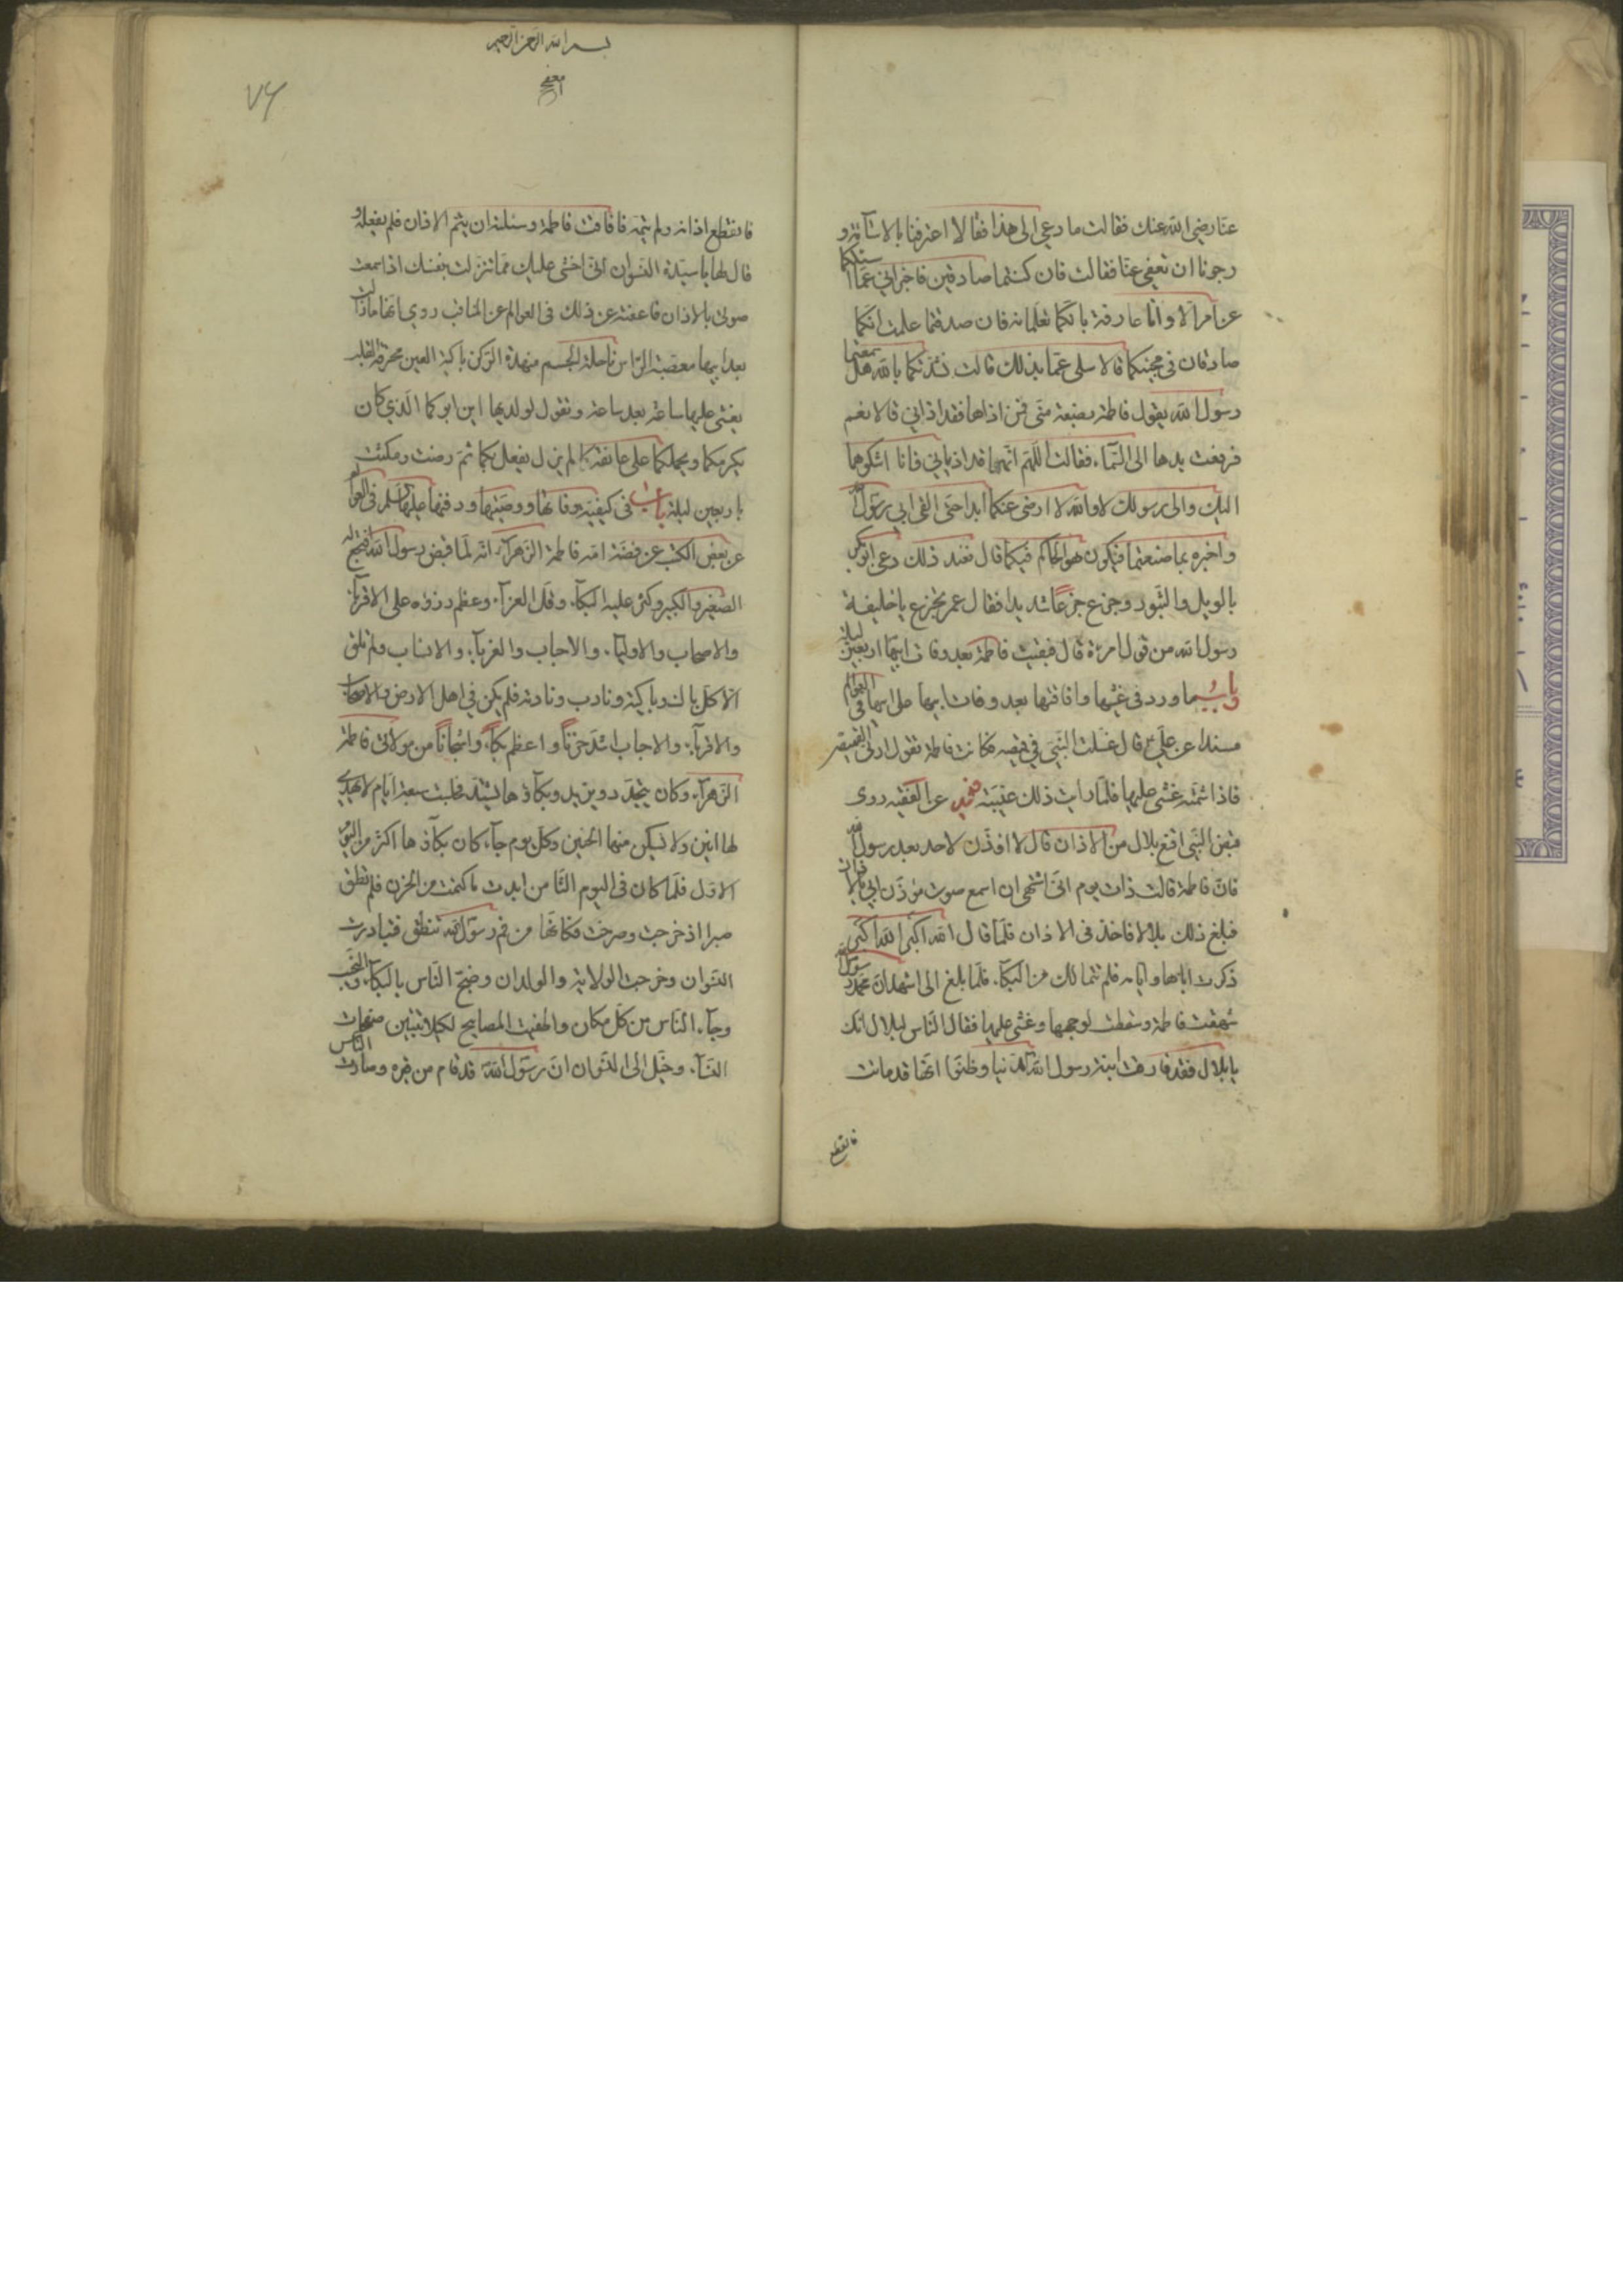 عنّا رضي الله عنك فقالت ما دعي الى هذا فقالا اعترفنا بالاسآئة و
رجونا ان تعفي عنّا فقالت فان كنتما صادقين فاخبراني عمّا اسئلكما
عن امرالّا و انا عارفة بانّكما تعلمانه فان صدقتما علمت انّكما
صادقان فى مجيئكما قالا سلى عمّا بذلك قالت نشدتكما بالله هل سمعتما
رسول الله يقول فاطمة بضعة منّى فمن اذاها فقد اذاني قالا نعم
فرفعت يدها الى السّماء فقالت اللّهم انّهما قد اذياني فانا اشكوهما
اليك والى رسولك لا والله لا ارضى عنكما ابدا حتى القى ابي رسول الله
واخبره بما صنعتما فيكون هو الحاكم فيكما قال فعند ذلك دعى ابو بكر
بالويل والثّبور وجزع جزعًا شديدا فقال عمر تجزع يا خليفة
رسول الله من قول امرءة قال فبقيت فاطمة بعد وفات ابيها اربعين ليلة
باب فيما ورد فى غشيها وافاقتها بعد وفات ابيها صلى ابيها فى العوالم
مسندا عن علىّ قال غسلت النّبى فى قميصه فكانت فاطمة تقول ارنى القميص
فاذا شمّته غشى عليها فلمّا رايت ذلك غيّبته عن الفقيه روى
قبض النّبى افتنع بلال من الاذان قال لا اوذّن لاحد بعد رسول الله
فانّ فاطمة قالت ذات يوم انّى اشتهى ان اسمع صوت مؤذّن ابي بالاذان
فبلغ ذلك بلالا فاخذ فى الاذان فلمّا قال الله اكبر الله اكبر
ذكرت اباها و ايّامه فلم تتمالك من البكآء فلمّا بلغ الى اشهد انّ محمّدا رسول الله
شهقت فاطمة وسقطت لوجهها وغشى عليها فقال النّاس لبلال امسك
يا بلال فقد فارقت ابنة رسول الله الدّنيا وظنّوا انّها قد ماتت
فانقطع
بسم الله الرّحمن الرّحيم
٧٦
فانقطع اذانه ولم يتمّه فافاقت فاطمة وسئلته ان يتمّ الاذان فلم يفعله و
قال لها يا سيّدة النّسوان انّى اخشى عليك ممّا تنزلت بنفسك اذا سمعت
صوتى بالاذان فاعفته عن ذلك فى العوالم عن المناقب روي انّها مازالت
بعد ابيها معصّبة الرّاس ناحلة الجسم منهدّة الرّكن باكية العين محرقة القلب
يغشى عليها ساعة بعد ساعة وتقول لولديها اين ابوكما الّذي كان
يكرمكما ويحملكما على عاتقه لم يزل يفعل بكما ثمّ رضت ومكثت
باربعين ليلة باب فى كيفيّة وفاتها ووصيّتها ودفنها عليها سلم فى العوالم
عن بعض الكتب عن فضّة امة فاطمة الزّهراء انّه لمّا قبض رسول الله افتجع له
الصّغير والكبير وكثر عليه البكآء وقلّ العزآء وعظم رزؤه على الاقربآء
والاصحاب والاوليآء والاحباب والغربآء والانساب ولم تلق
الّا كلّ باك وباكية ونادب ونادبة فلم يكن فى اهل الارض والاصحاب
والاقربآء والاحباب اشدّ حزنًا واعظم بكآءً وانتحابًا من مولاتى فاطمة
الزّهرآء وكان يتجدّد ويزيد وبكآؤها يشتدّ فجلست سبعة ايّام لا يهدى
لها انين ولا يسكن منها الحنين وكلّ يوم جآء كان بكآؤها اكثر من اليوم
الاوّل فلمّا كان فى اليوم الثّامن ابدت ما كتمت من الحزن فلم تطق
صبرا اذ خرجت وصرخت فكانّها من فم رسول الله تنطق فتبادرت
النّسوان وخرجت الولائد والولدان وضجّ النّاس بالبكآء والنّحيب
وجآء النّاس من كلّ مكان واطفئت المصابيح لكيلا تتبيّن صفحات
النّسآء وخيّل الى النّسوان انّ رسول الله قد قام من قبره وصارت النّاس